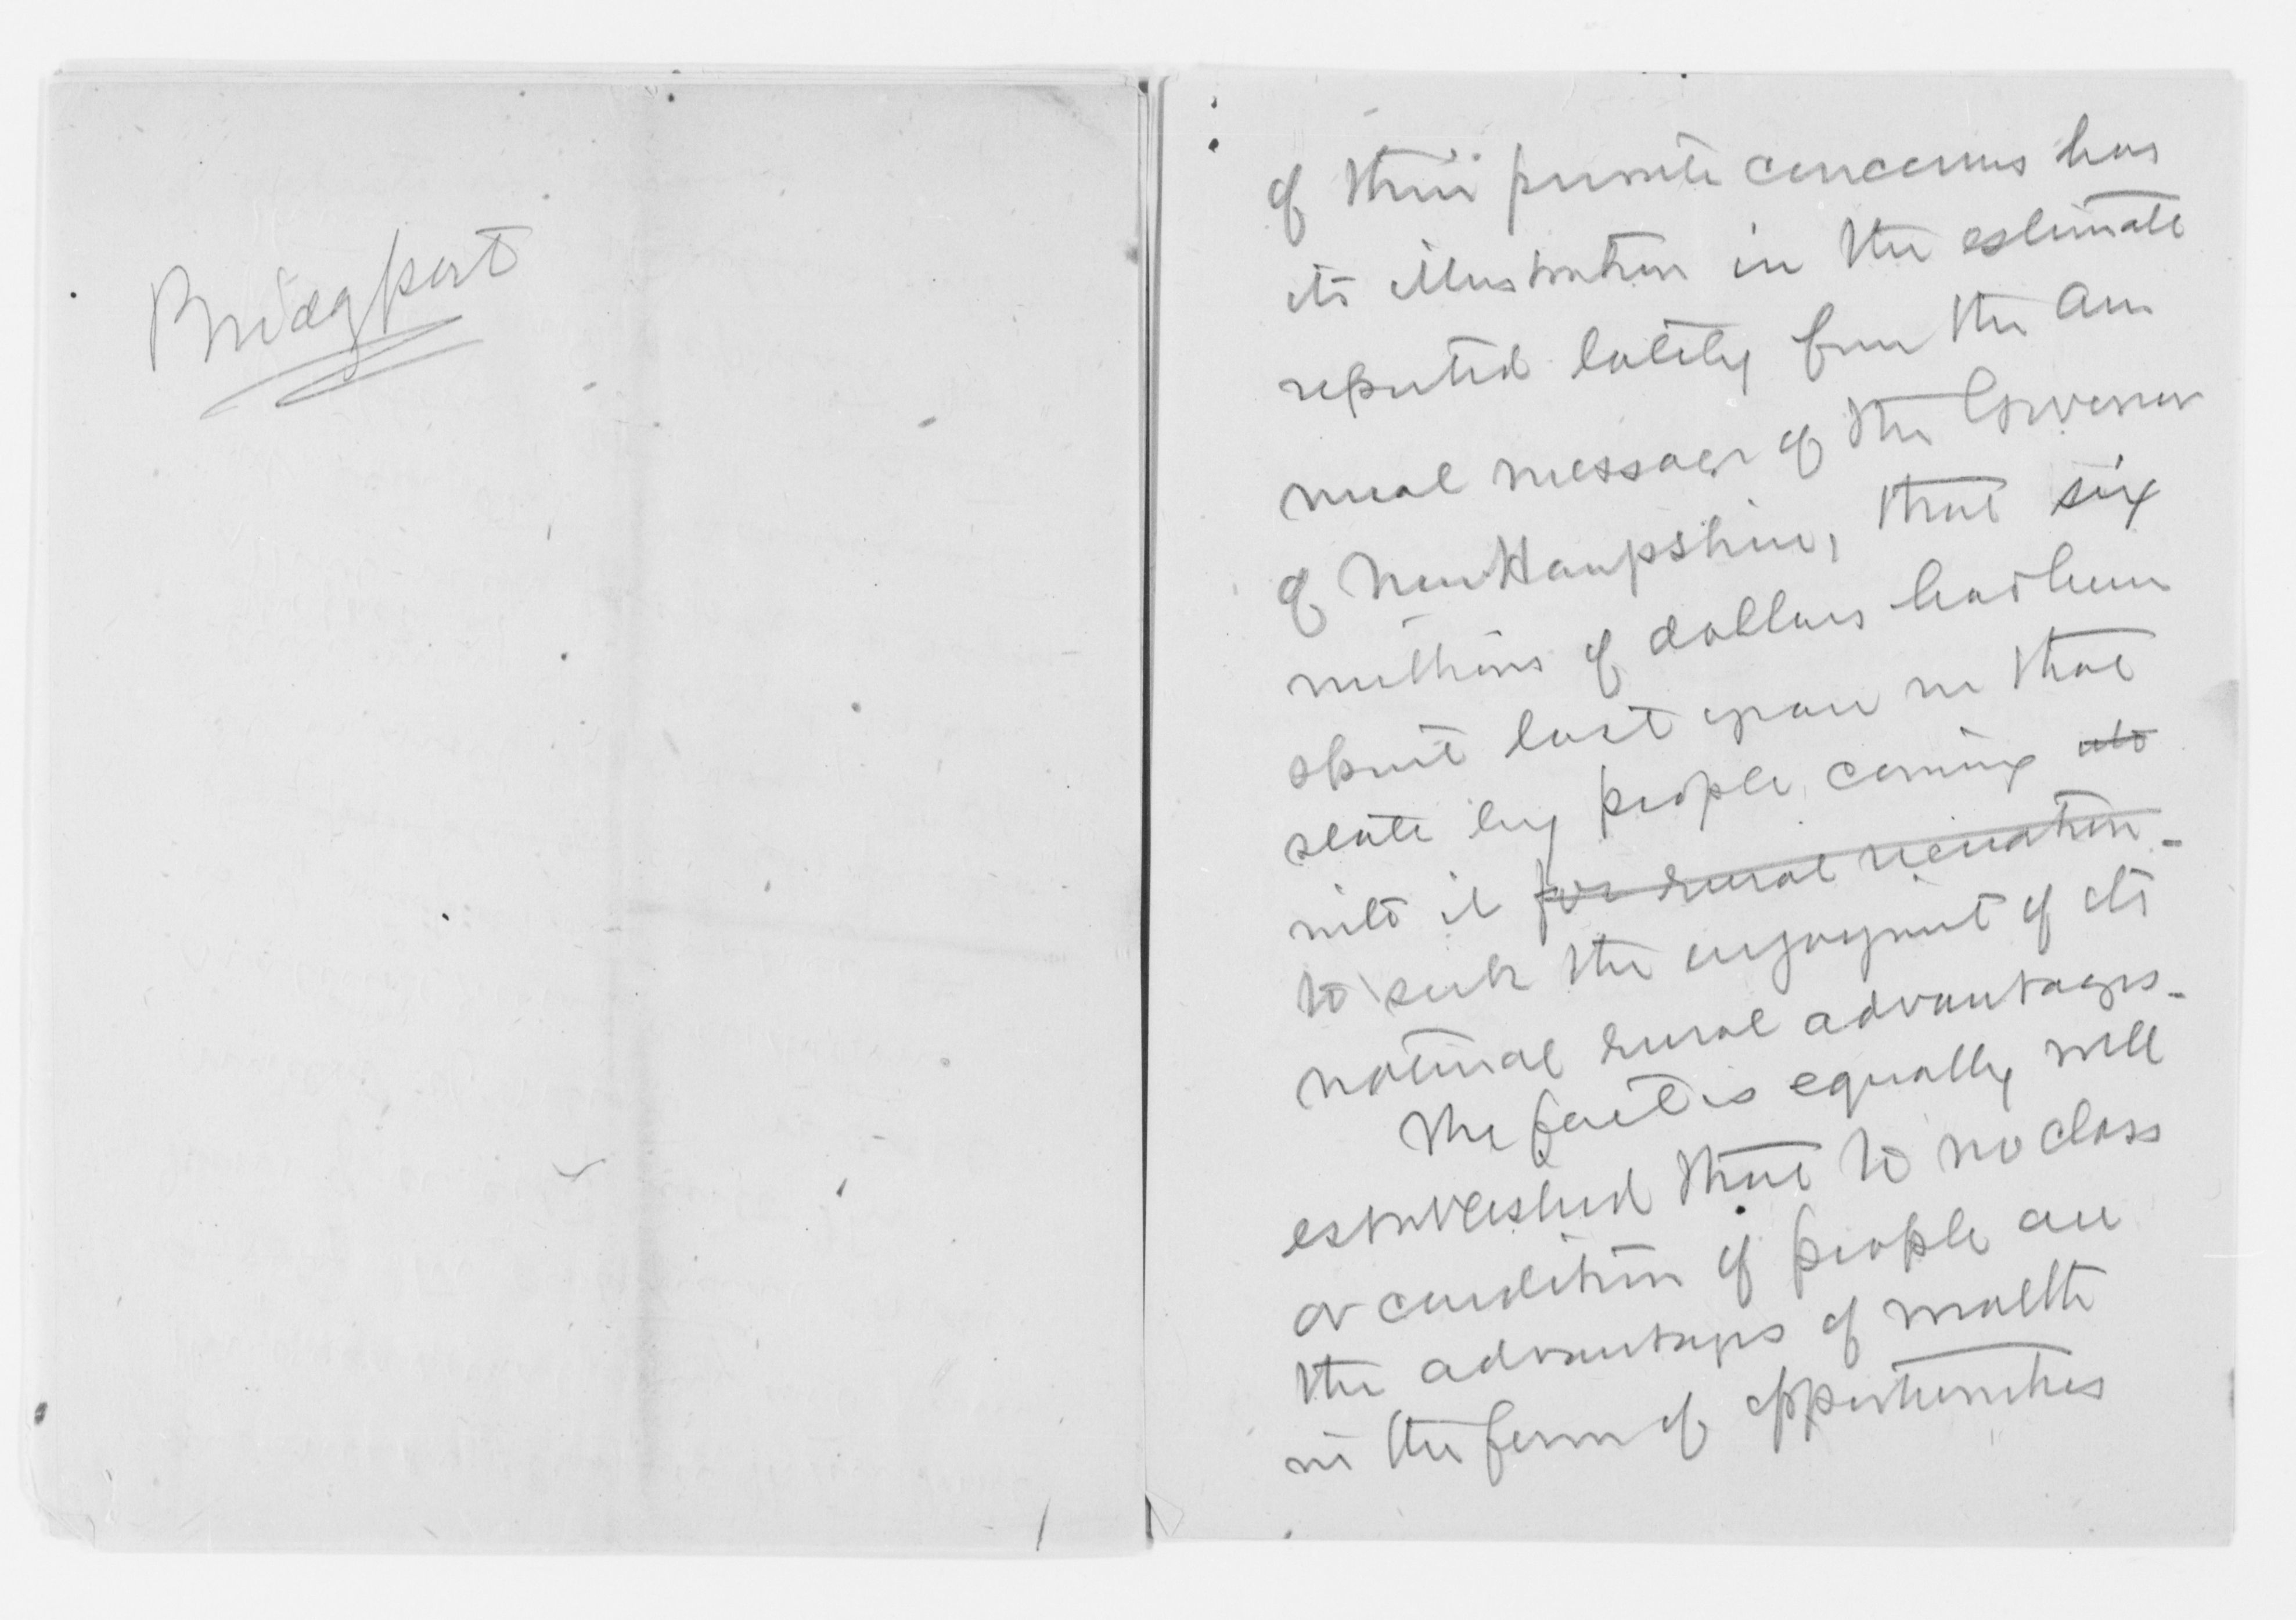 Bridgport
of their private concerns has
its illustration in the estimate
reported lately from the an
nual message of the Governor
of New Hampshire, that six
millions of dollars had been
spent last year in that
state by people coming into
into it for rural recreation -
to seek the enjoyment of its
natural rural advantages -
The fact is equally well
established that to no class
or condition of people are
the advantages of wealth
in the form of opportunities